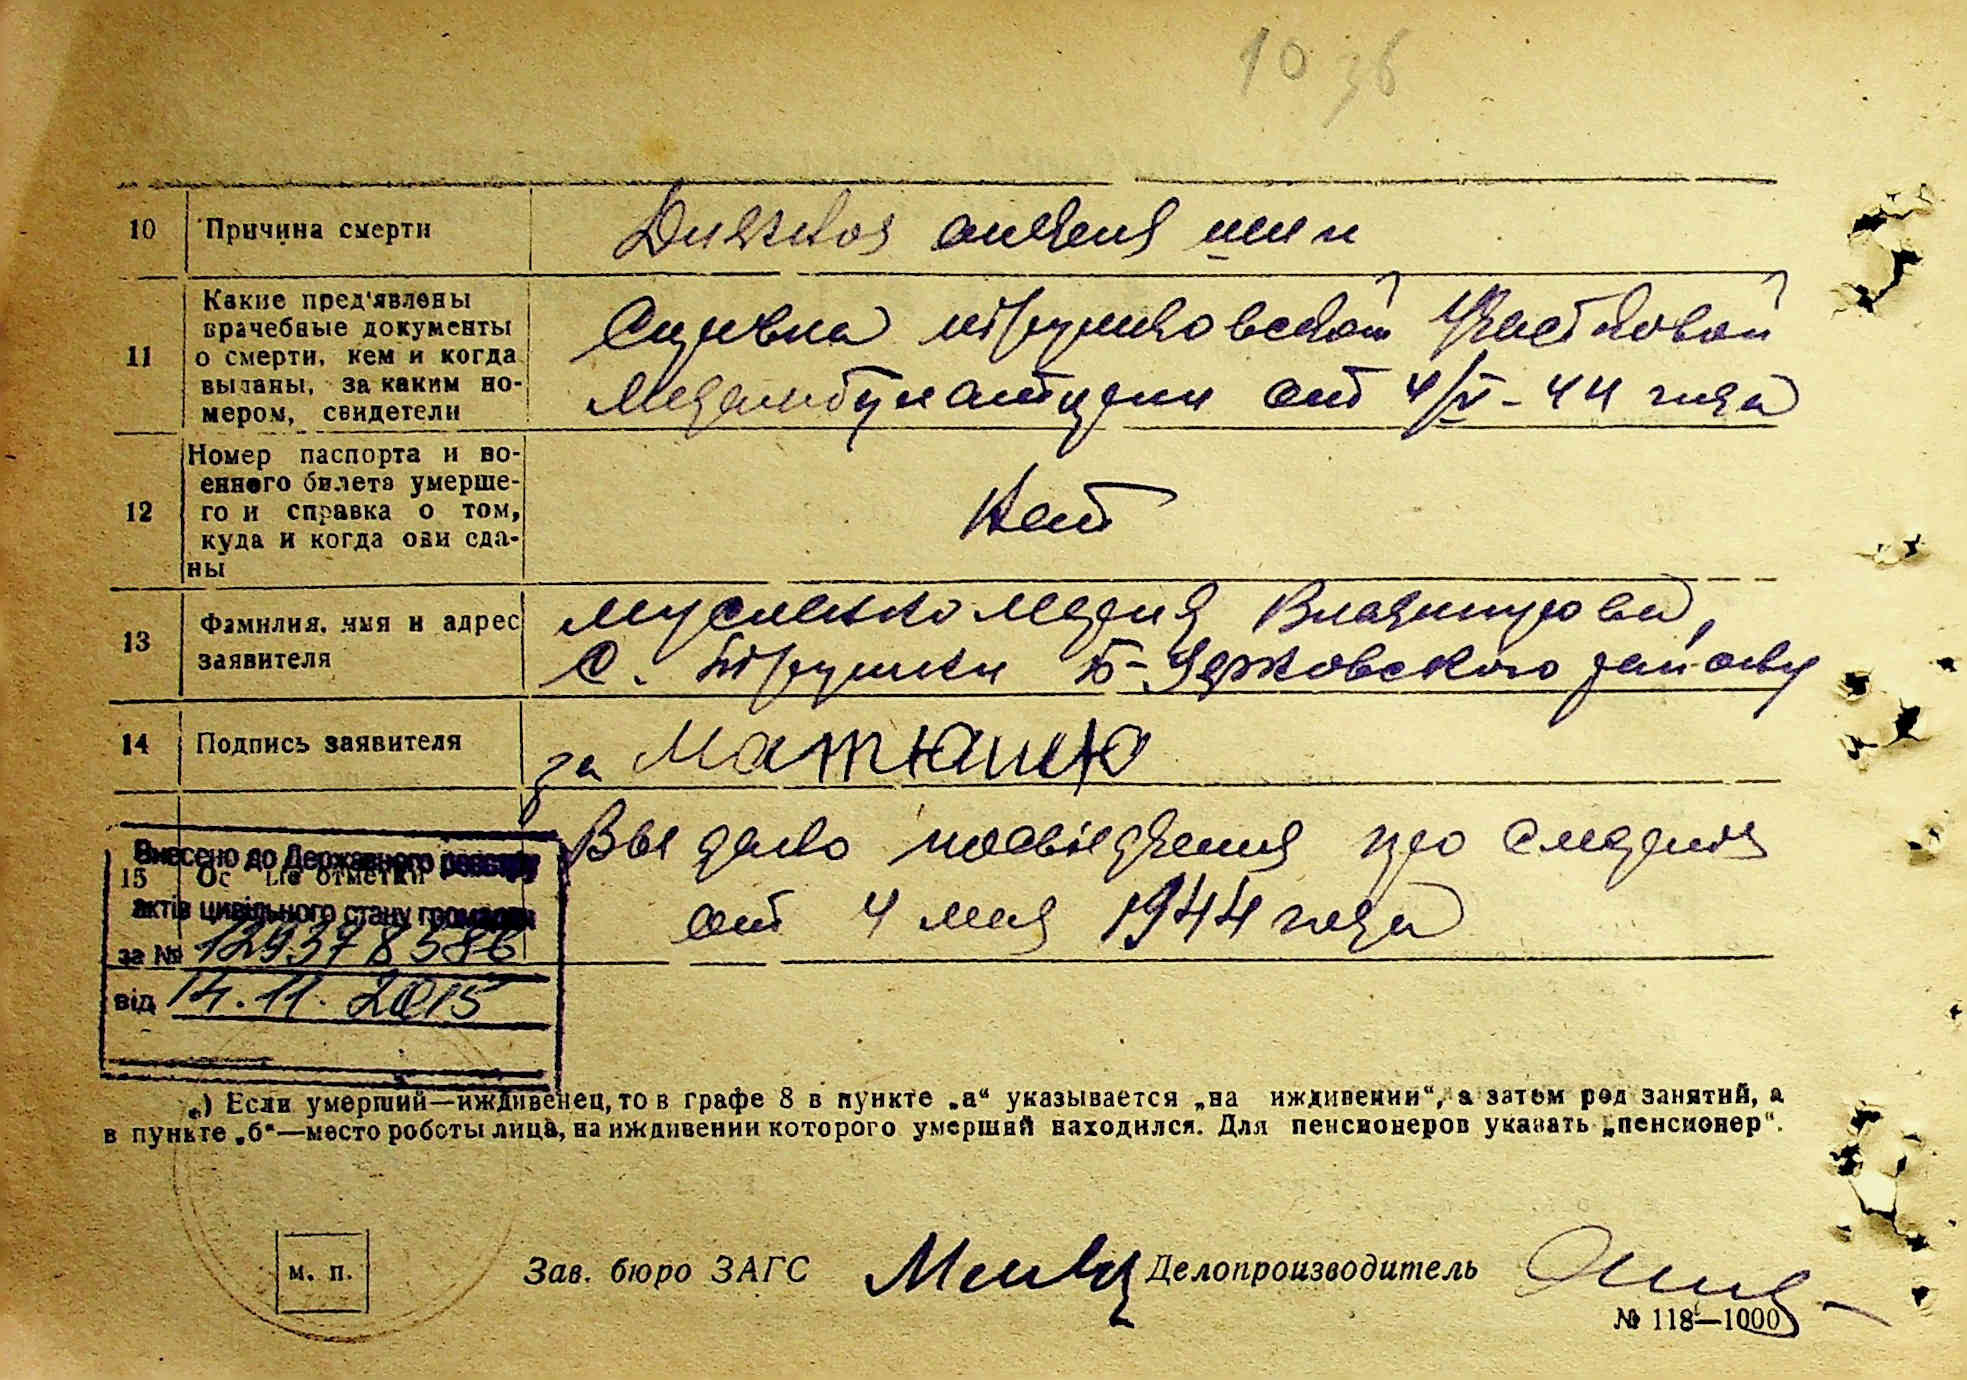 10 36
10 Причина смерти
11 Какие пред'явлены
врачебные документы
о смерти, кем и когда
выданы, за каким но-
мером, свидетели
Справка Трушковской Участковой
Медамбулатории от 4/V-44 года
12 Номер паспорта и во-
енного билета умерше-
го и справка о том,
куда и когда они сда-
ны
Нет
13 Фамилия, имя и адрес
заявителя
Мария
с. Трушки Б-Церковского району
14 Подпись заявителя
за Матюшко
15 Ос ые отметки
от 4 мая 1944 года
Внесено до Державного реєстру
актів цивільного стану громадян
за № 129378586
від 14.11.2015
„) Если умерший—иждивенец, то в графе 8 в пункте „а“ указывается „на иждивении“, а затем род занятий, а
в пункте „б“—место роботы лица, на иждивении которого умерший находился. Для пенсионеров указать „пенсионер“.
м. п.
Зав. бюро ЗАГС Делопроизводитель
№ 118—1000